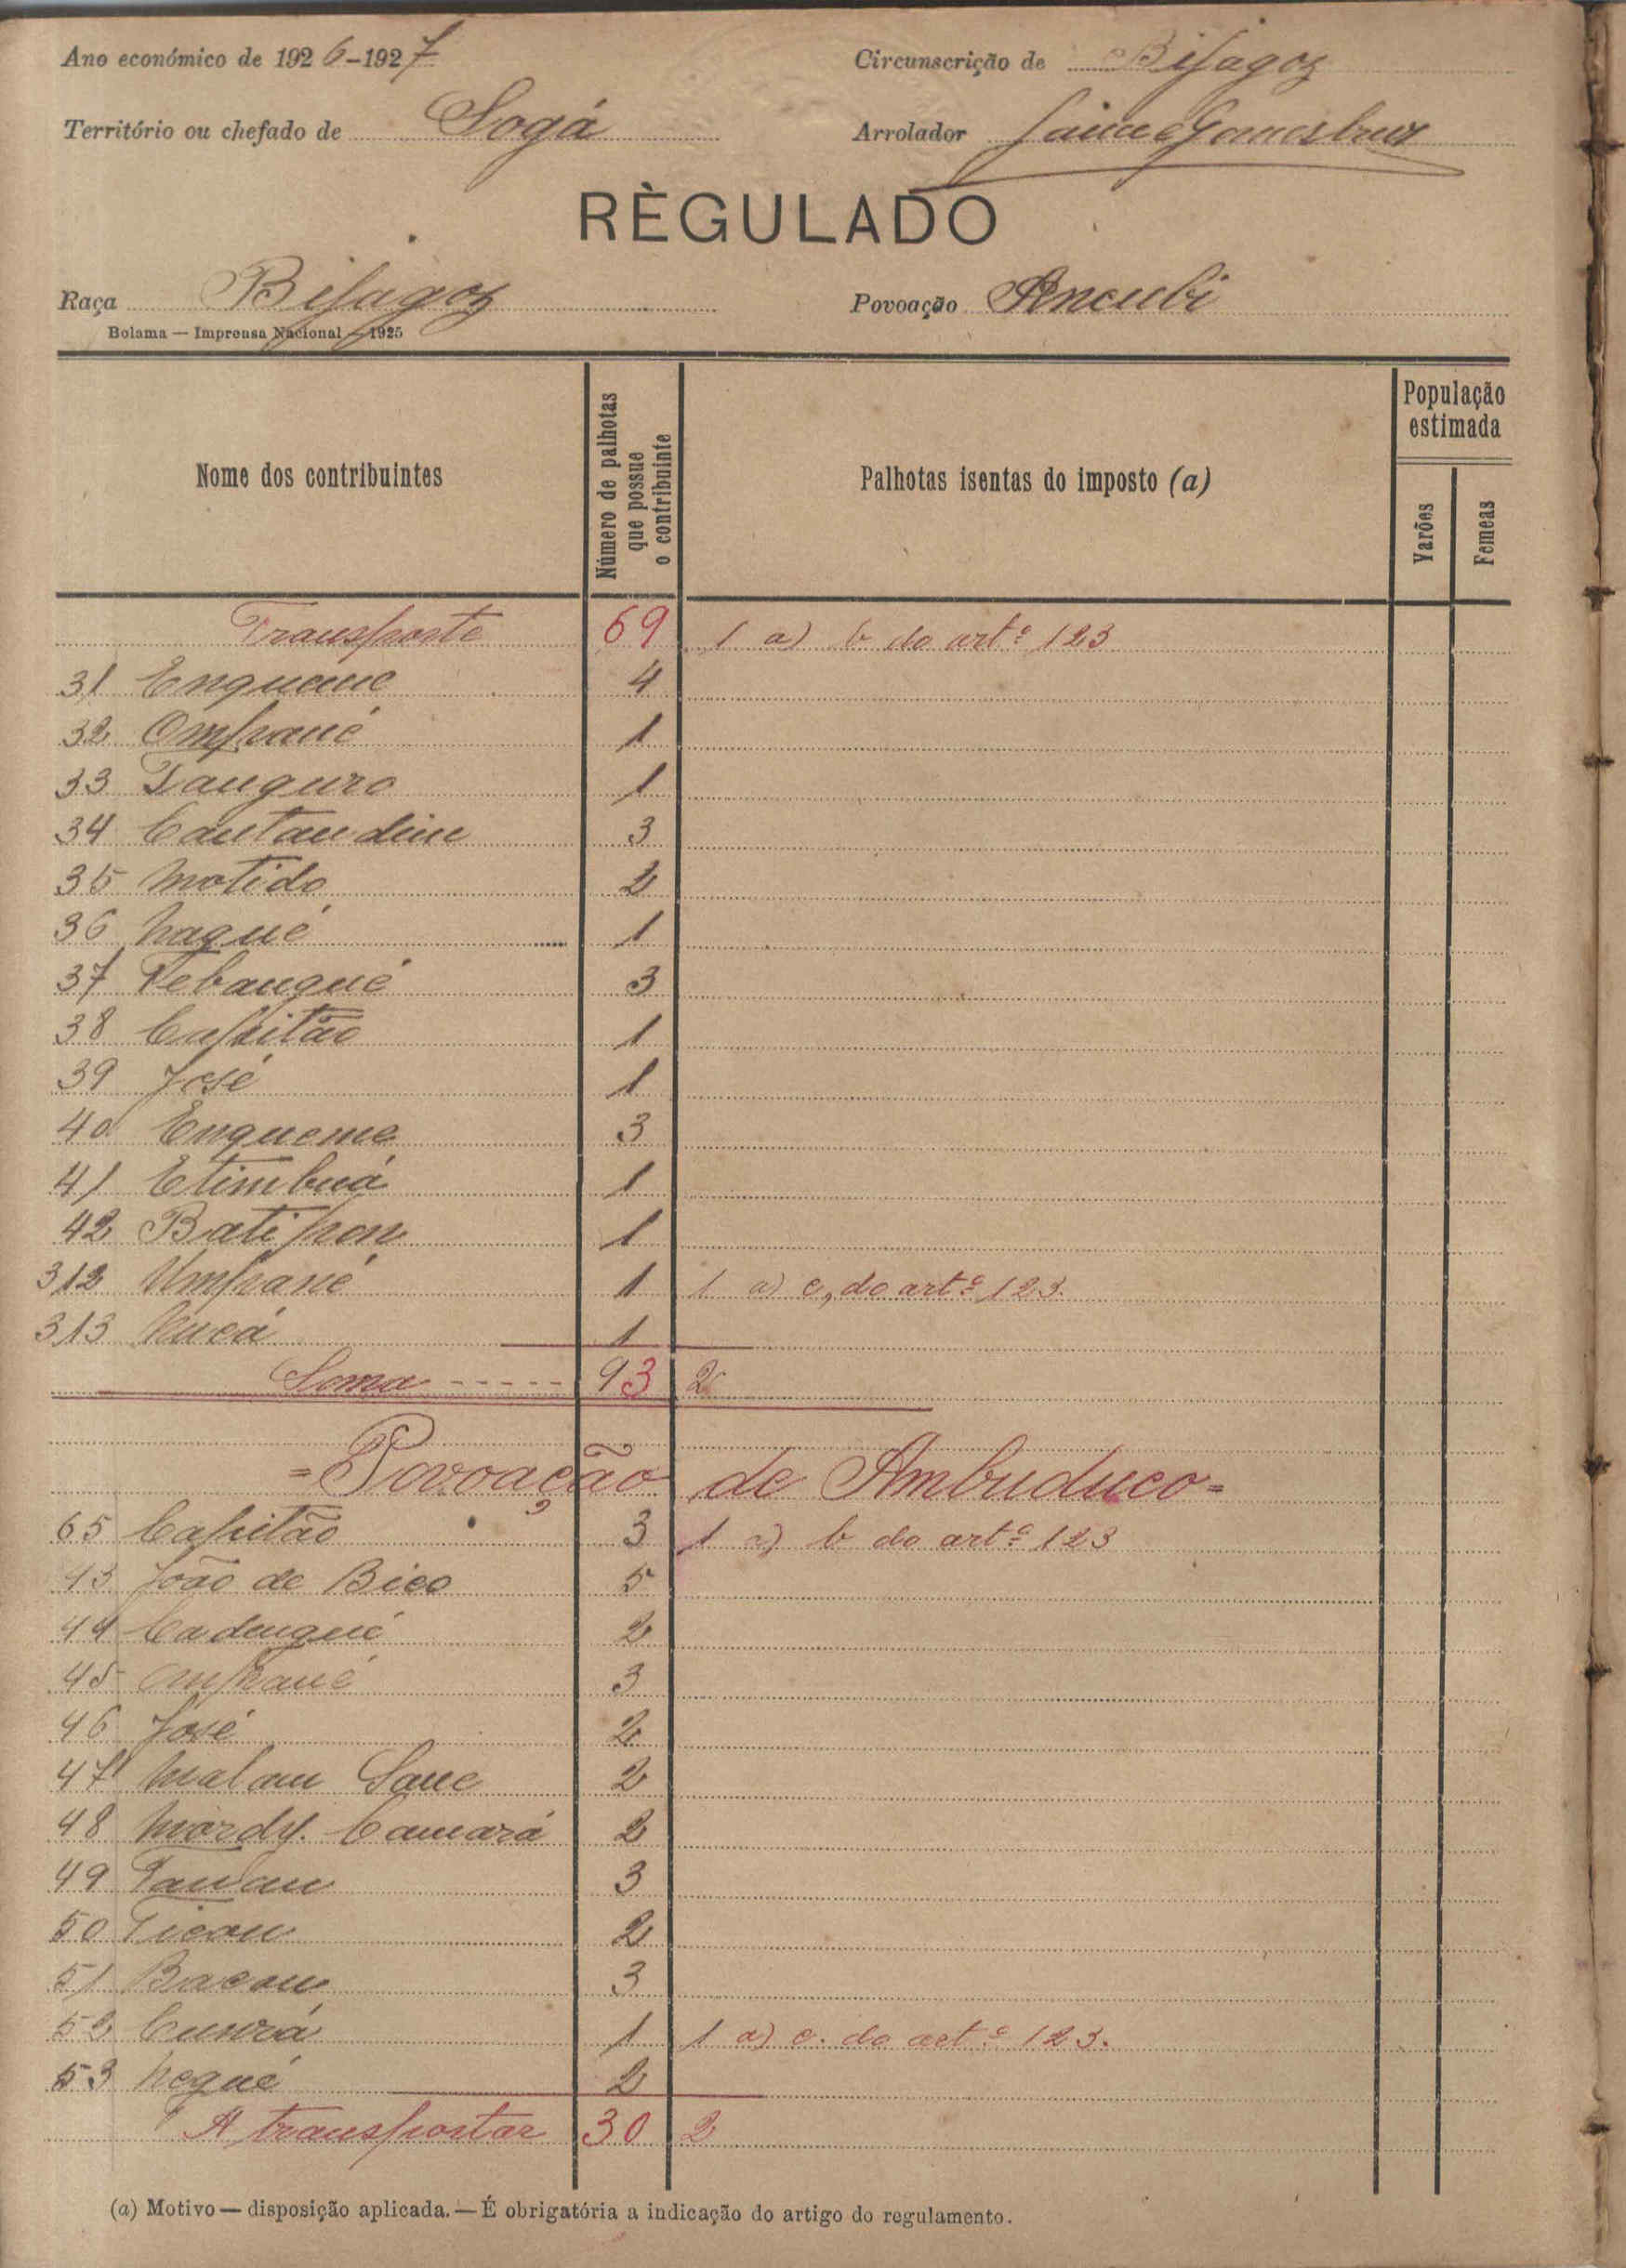 Ano económico de 1926-1927 Circunscrição de Bijagoz
Território ou chefado de Sogá Arrolador Jaime Gomes
RÈGULADO
Raça Bijagoz Povoação Ancubi
Bolama — Imprensa Nacional — 1925
Nome dos contribuintes
Número de palhotas que possue o contribuinte
Palhotas isentas do imposto (a)
População estimada
Varões
Femeas
Transporte 69 1 a) b do artº 123
31 Enquane 4
32 Ompané 1
33 Tanguro 1
34 Cantandim 3
35 Motido 2
36 Naqué 1
37 Nebanqué 3
38 Capitão 1
39 José 1
40 Enqueme 3
41 Etimbuá 1
42 Batipon 1
312 Umpané 1 1 a) c, do artº 123.
313 1
Soma ----- 93 2
= Povoação de Ambuduco =
65 Capitão 3 1 a) b do artº 123
43 João de Bico 5
44 Cadenqué 2
45 Ompané 3
46 José 2
47 Malam Sane 2
48 Mordy. Camará 2
49 3
50 Ticon 2
51 Bacam 3
52 1 1 a) c. do artº 123.
53 Nequé 2
A transportar 30 2
(a) Motivo — disposição aplicada. — É obrigatória a indicação do artigo do regulamento.